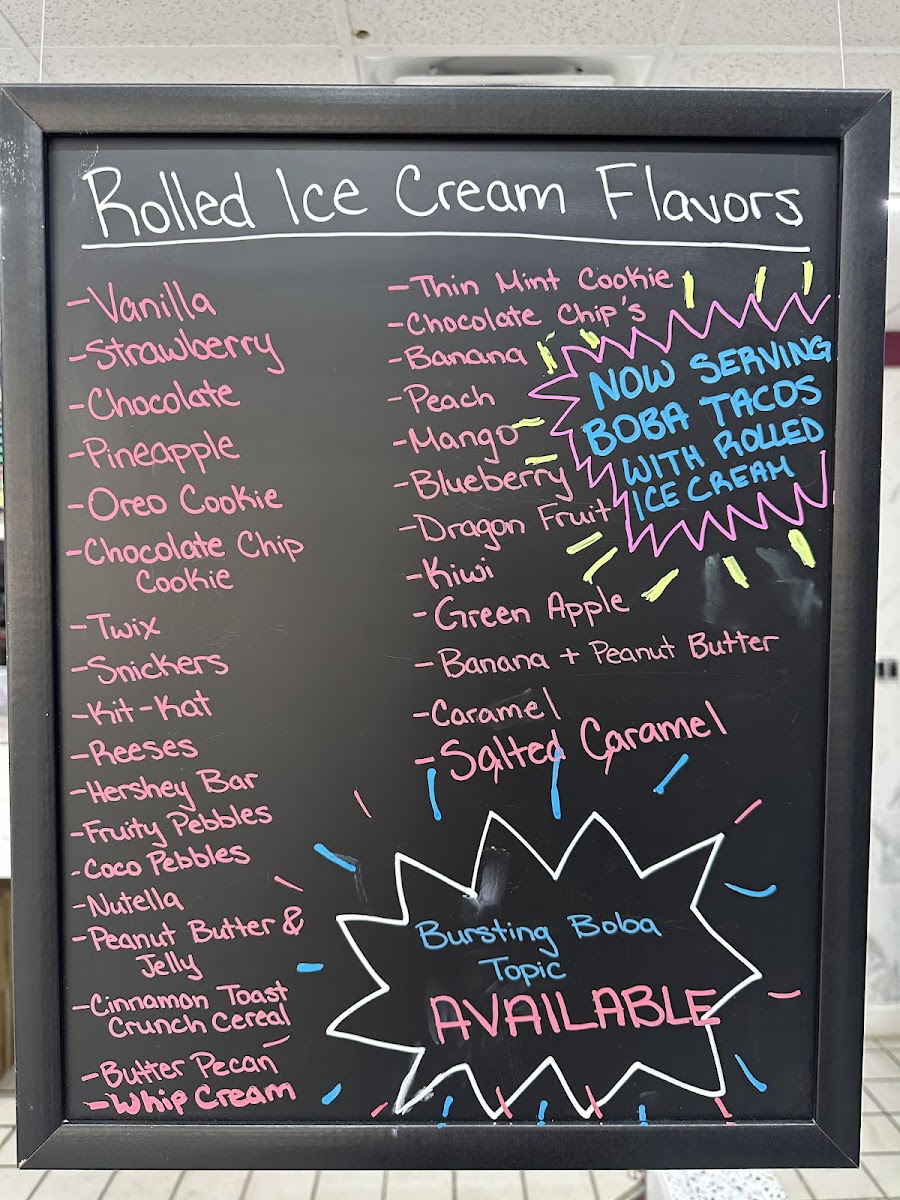 Rolled Ice Cream Flavors
-Vanilla
-Strawberry
-Chocolate
-Pineapple
-Oreo Cookie
-Chocolate Chip
Cookie
-Twix
-Snickers
-Kit-Kat
-Reeses
-Hershey Bar
-Fruity Pebbles
-Coco Pebbles
-Nutella
-Peanut Butter &
Jelly
-Cinnamon Toast
Crunch Cereal
-Butter Pecan
-Whip Cream
-Thin Mint Cookie
-Chocolate Chip's
-Banana
-Peach
-Mango
-Blueberry
-Dragon Fruit
-Kiwi
-Green Apple
-Banana + Peanut Butter
-Caramel
-Salted Caramel
NOW SERVING
BOBA TACOS
WITH ROLLED
ICE CREAM
Bursting Boba
Topic
AVAILABLE